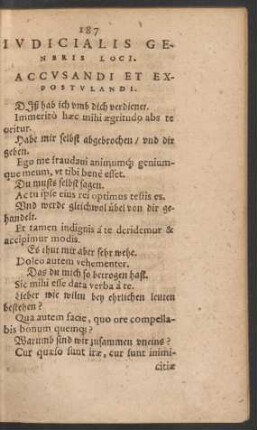 187
IVDICIALIS GE-
NERIS LOCI.
ACCVSANDI ET EX-
POSTVLANDI.
DIß hab ich vmb dich verdienet.
Immeritò hæc mihi ægritudo abs te
oritur.
Habe mir selbst abgebrochen / vnd dir
geben.
Ego me fraudaui animumq́; genium-
que meum, vt tibi benè esset.
Du must selbst sagen.
Actu ipse eius rei optimus testis es.
Vnd werde gleichwol übel von dir ge-
handelt.
Et tamen indignis á te deridemur &
accipimur modis.
Es thut mir aber sehr wehe.
Doleo autem vehementer.
Das du mich so betrogen hast.
Sic mihi esse data verba á te.
Lieber wie wiltu bey ehrlichen leuten
bestehen?
Qua autem facie, quo ore compella-
bis bonum quemqı́?
Warumb sind wir zusammen vneins?
Cur quæso sunt iræ, cur sunt inimi-
citiæ